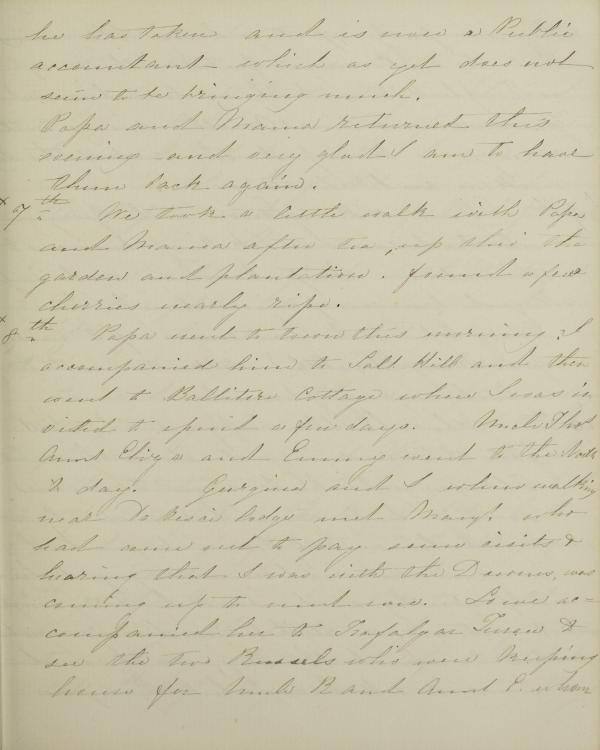 he has taken and is now a Public
accountant which as yet does not
seem to be bringing much.
Papa and Mama returned this
evening and very glad I am to have
them back again.
x 7th We took a little walk with Papa
and Mama after tea, up thro' the
garden and plantation. found a few
cherries nearly ripe.
x 8th Papa went to town this morning. I
accompanied him to Salt Hill and then
went to Cottage where I was in
vited to spend a few days. Uncle Thos
Aunt Eliza and Emmy went to the
to day. Georgina and I when walking
near De Vesci lodge met Mary. who
had come out to pay some visits &
hearing that I was with the was
coming up to meet me. So we ac=
companied her to Trafalgar Terrace &
see the two Russels who were keeping
house for Uncle R and Aunt P. whom